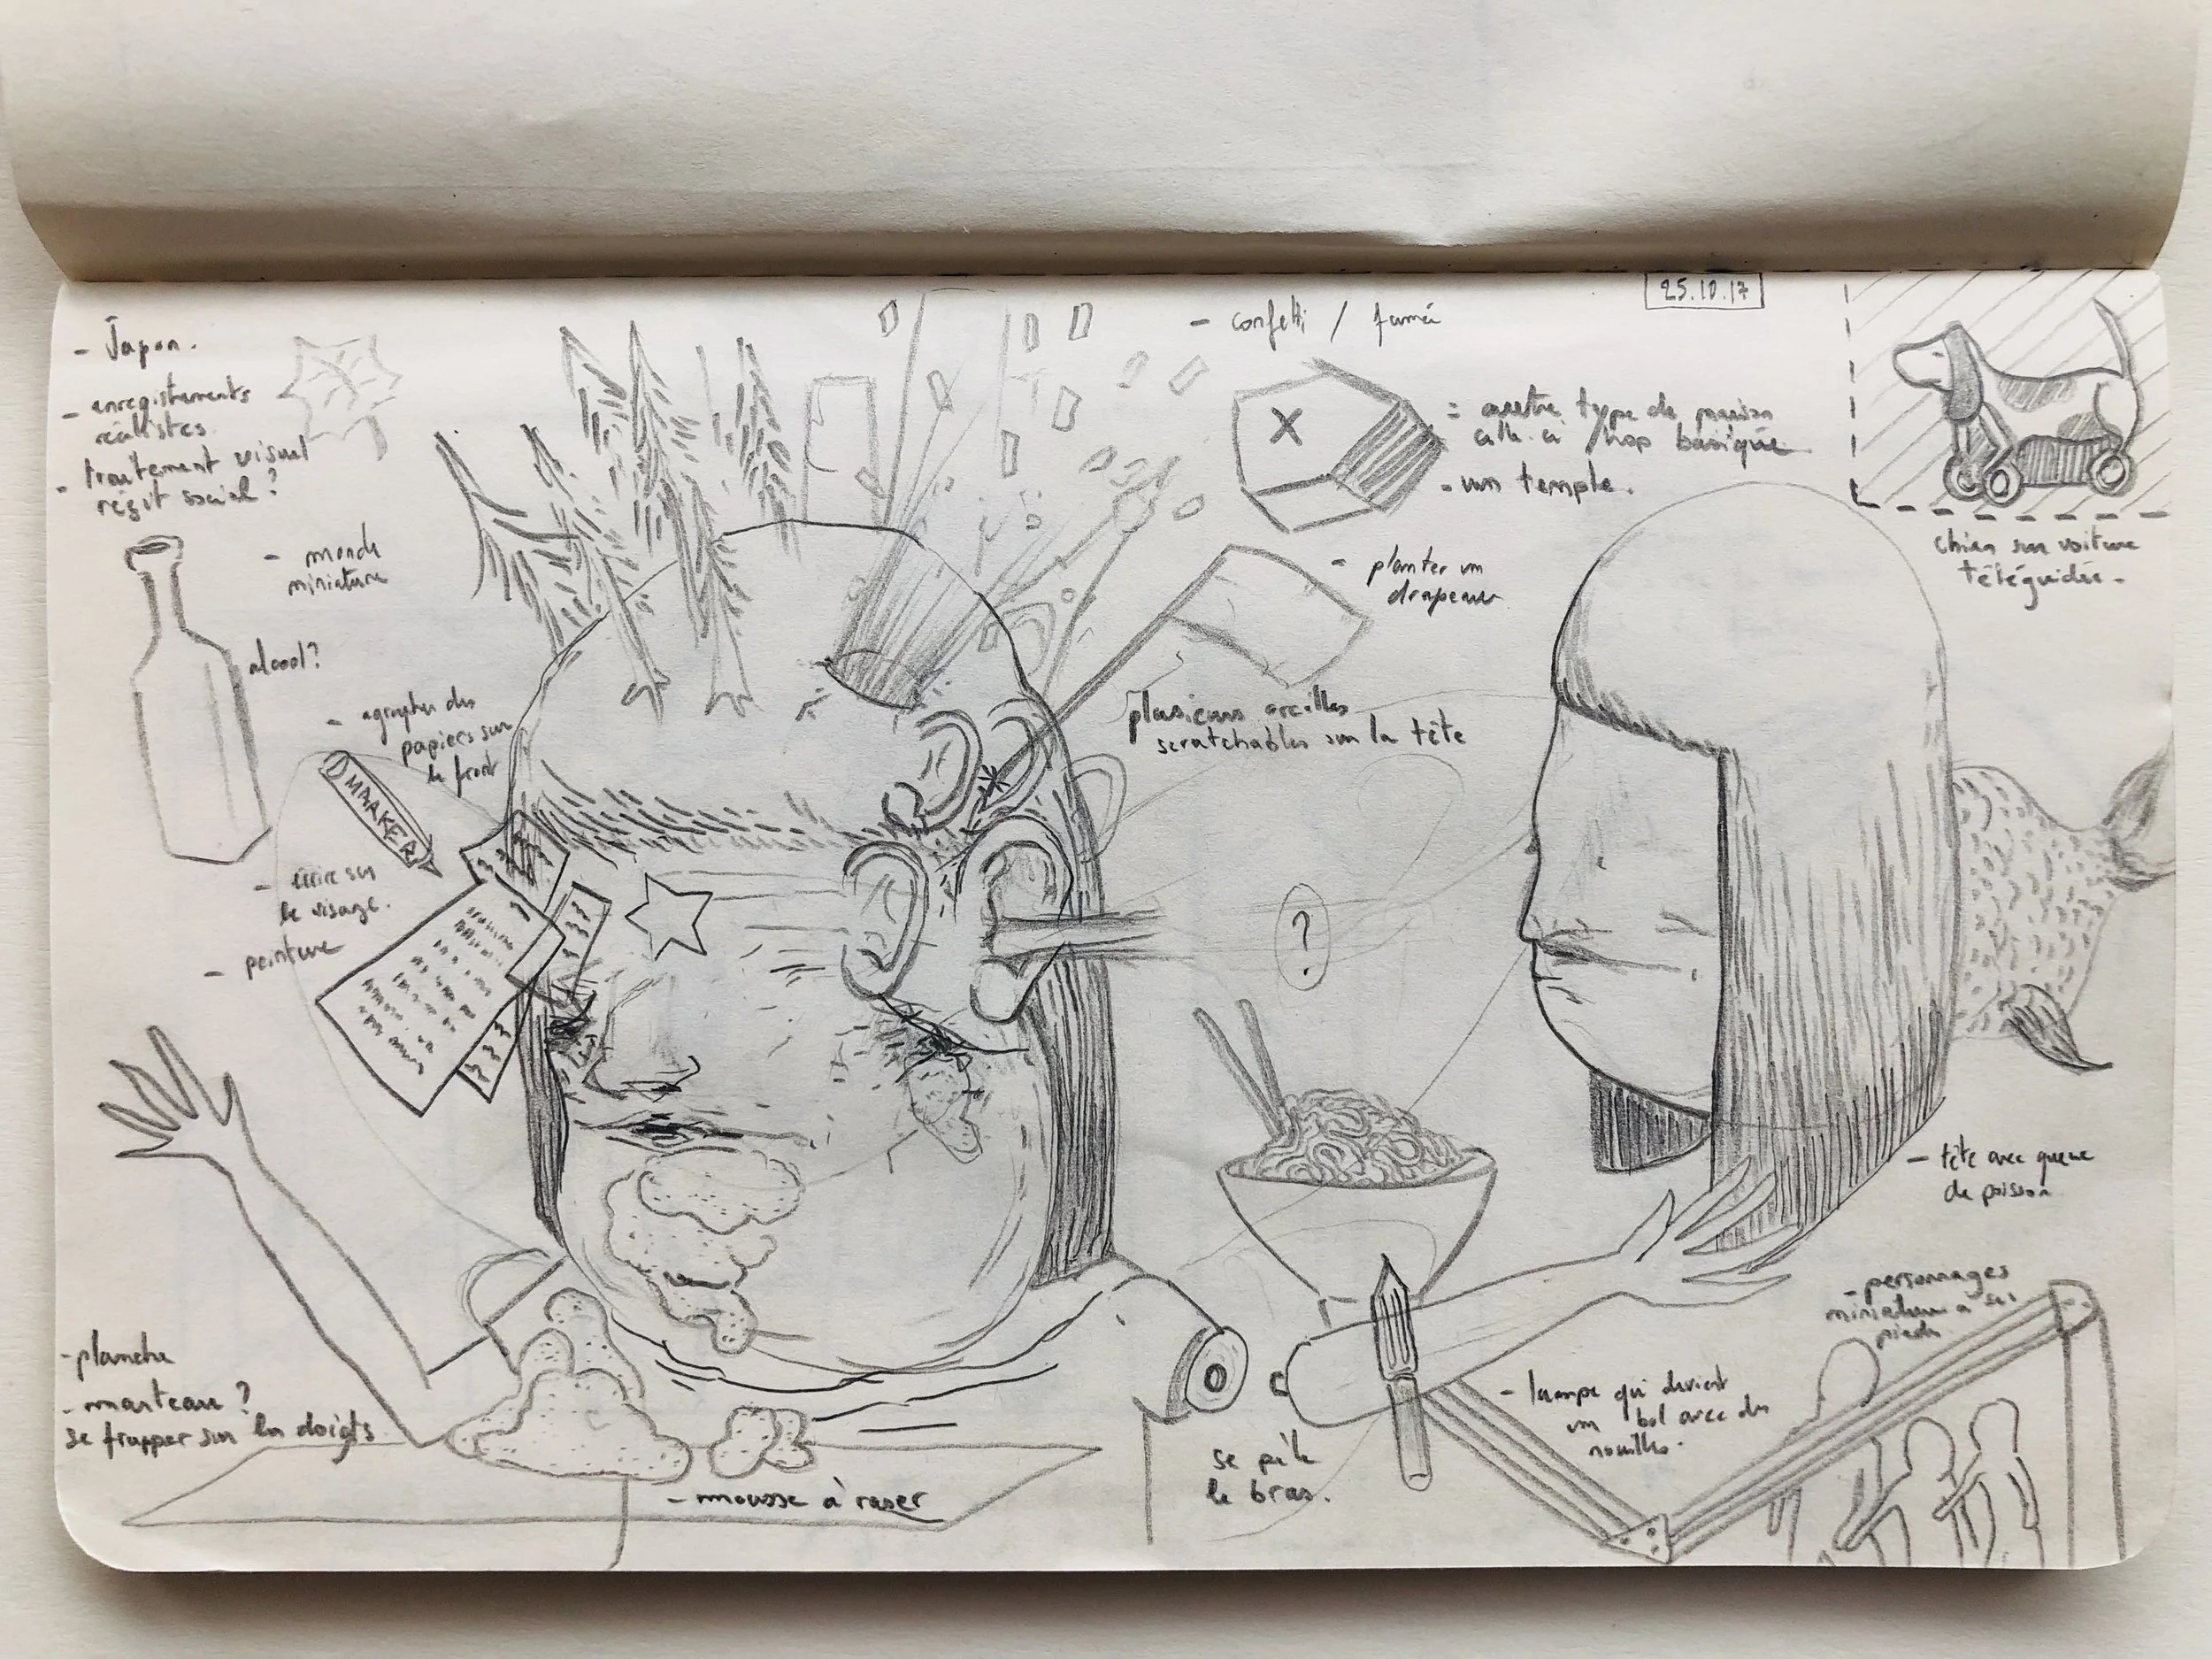 - Japon.
- enregistements
réalistes
- traitement visuel
récit social ?
- monde
miniature
alcool ?
- agrapher des
papiers sur
le front
MAAKER
- écrire sur
le visage.
- peinture
- planche
- marteau ?
se frapper sur les doigts
- mousse à raser
- confetti / fumée
25.10.17
X
= autre type de maison
celle-ci trop basique
- un temple.
- planter un
drapeau
plusieurs oreilles
scratchables sur la tête
?
chien sur voiture
téléguidée -
- tête avec queue
de poisson
- personnages
miniature à ses
pieds
- lampe qui devient
un bol avec des
nouilles.
se pèle
le bras.